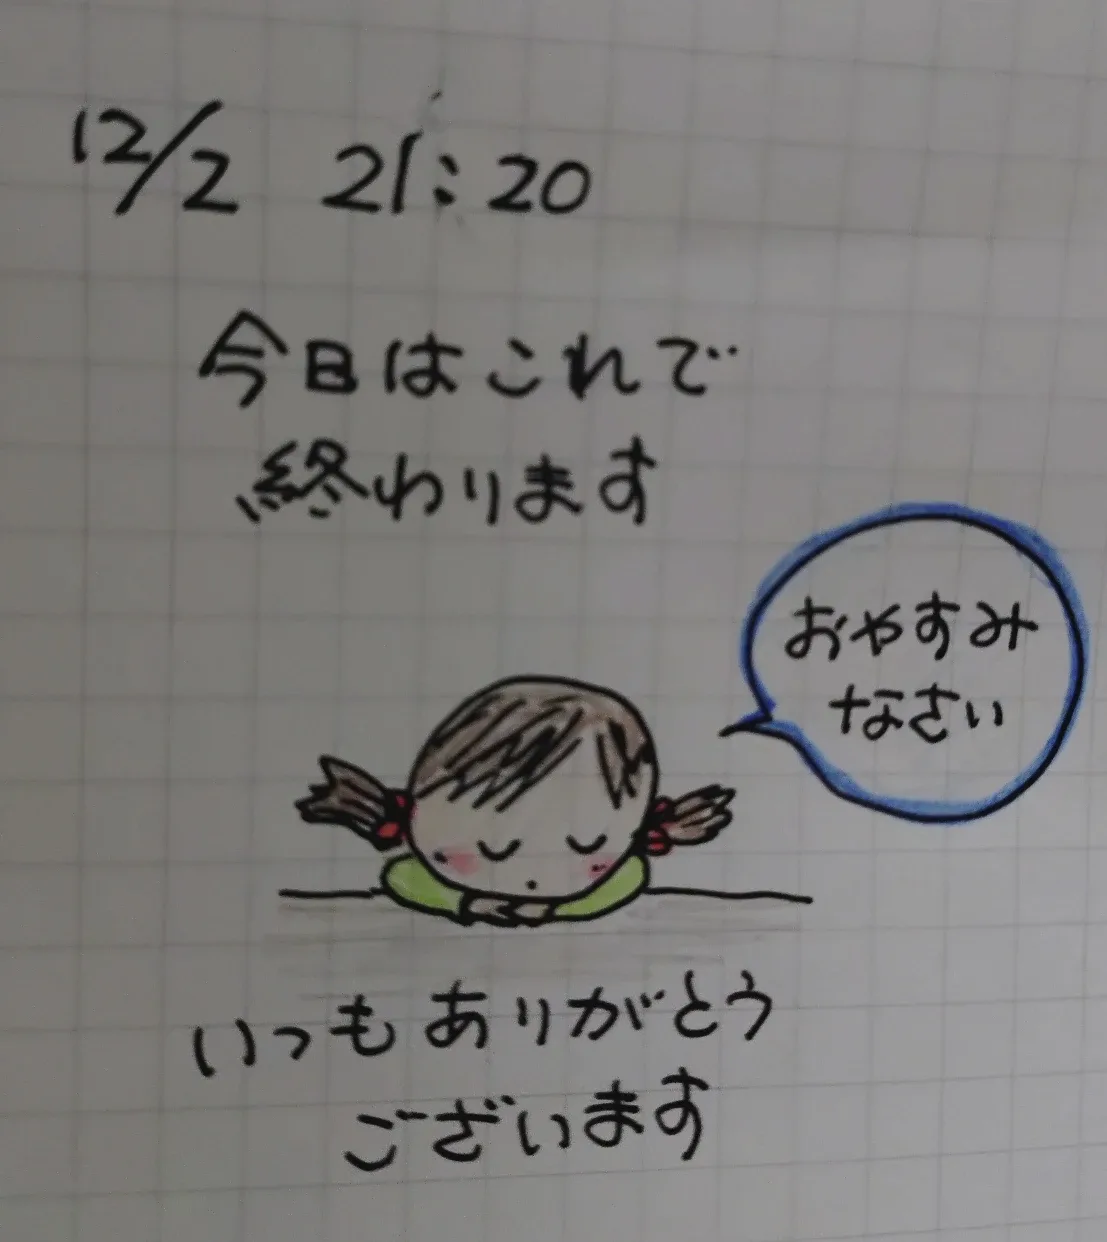 12/2 21:20
今日はこれで
終わります
おやすみ
なさい
いつもありがとう
ございます